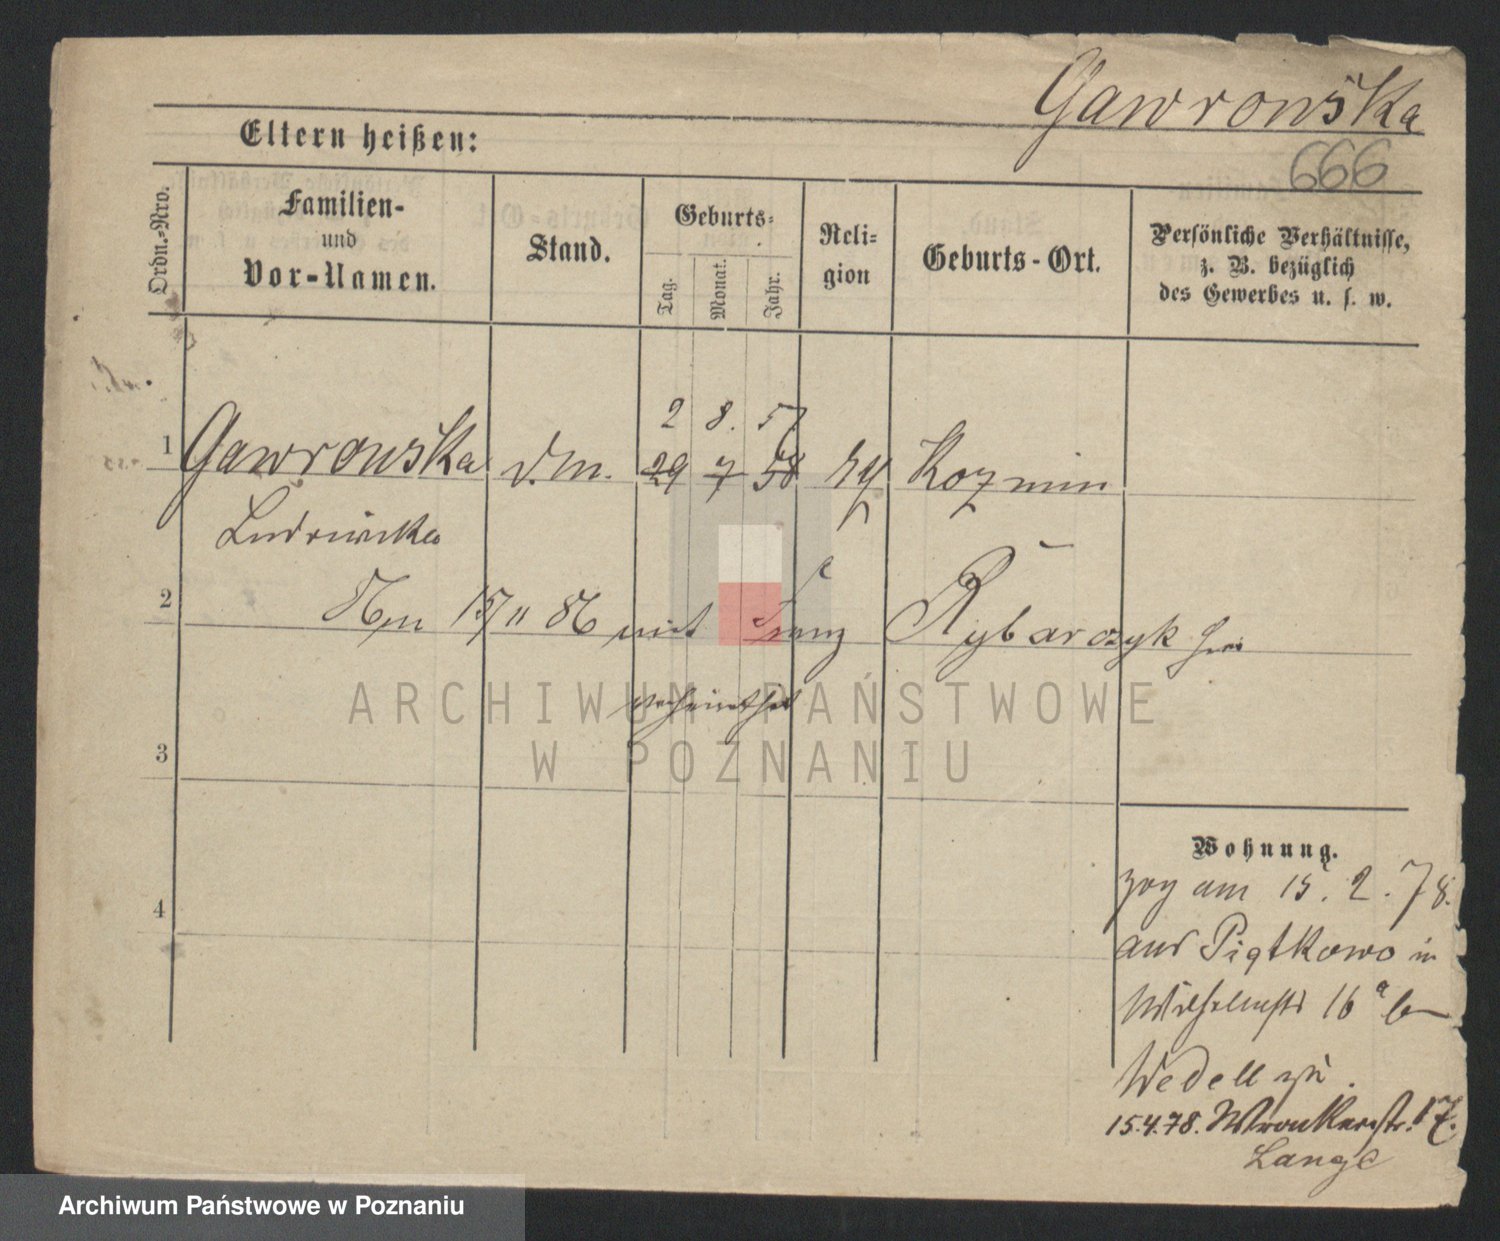 Gawrowska
666
Eltern heißen:
Ordn.-Nro.
Familien-
und
Vor-Namen.
Stand.
Geburts-
Tag.
Monat.
Jahr.
Reli-
gion
Geburts-Ort.
Persönliche Verhältnisse,
z. B. bezüglich
des Gewerbes u. s. w.
2 8. 57
1 Gawrowska d.m. 29 7 58 Kozmin
Ludowika
2 15/11 86 mit Franz Rybarczyk
verheirathet
3
Wohnung.
zog am 15.2.78.
aus Piątkowo in
Wilhelmstr 16a b
Wedell zu.
15.4.78. Wronkerstr. 17.
Lange
4
ARCHIWUM PAŃSTWOWE
W POZNANIU
Archiwum Państwowe w Poznaniu